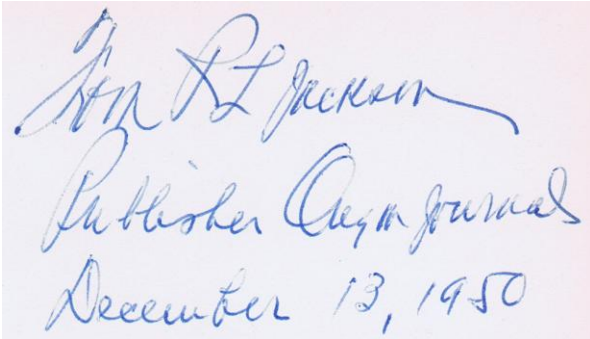 P L Jackson
Publisher Oregon Journal
December 13, 1950